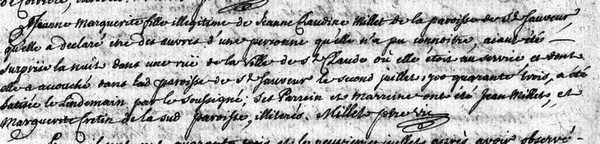 Jeanne Marguerite fille illegitime de Jeanne Claudine Millet de la paroisse de St Sauveur
qu'elle a declaré etre des œuvres d'une personne qu'elle n'a pu connoitre, aiant été
surprise la nuit dans une rue de la ville de St Claude ou elle etoit au service, et dont
elle a accouché dans lad paroisse de St Sauveur le second juillet 1700 quarante trois, a été
batisée le Lendemain par le soussigné; Ses Parrein et Marreine ont été Jean Millet, et
Marguerite Cretin de la sud paroisse, illiterés. Millet ptre vic
quarante trois et le neuvieme juillet après avoir observé